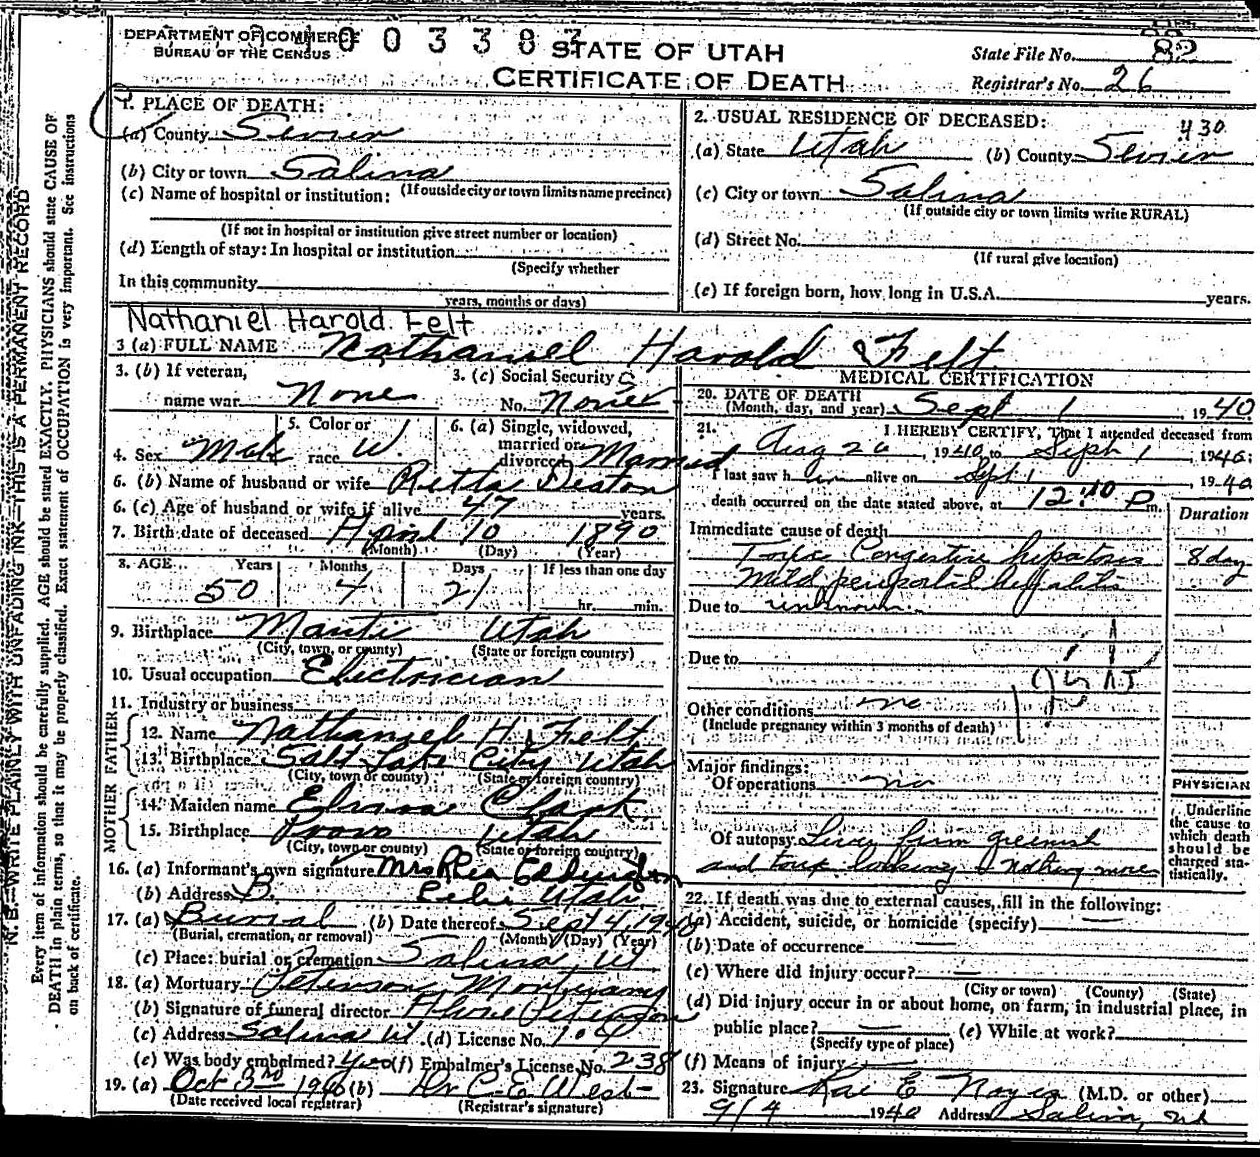 DEPARTMENT OF COMMERCE
BUREAU OF THE CENSUS
1003387
STATE OF UTAH
CERTIFICATE OF DEATH
State File No. 82
Registrar's No. 26
N. B.—WRITE PLAINLY WITH UNFADING INK—THIS IS A PERMANENT RECORD
Every item of information should be carefully supplied. AGE should be stated EXACTLY. PHYSICIANS should state CAUSE OF
DEATH in plain terms, so that it may be properly classified. Exact statement of OCCUPATION is very important. See instructions
on back of certificate.
1. PLACE OF DEATH:
(a) County Sevier
(b) City or town Salina
(If outside city or town limits name precinct)
(c) Name of hospital or institution:
(If not in hospital or institution give street number or location)
(d) Length of stay: In hospital or institution
(Specify whether
In this community
years, months or days)
2. USUAL RESIDENCE OF DECEASED:
430
(a) State Utah (b) County Sevier
(c) City or town Salina
(If outside city or town limits write RURAL)
(d) Street No.
(If rural give location)
(e) If foreign born, how long in U.S.A. years.
Nathaniel Harold Felt
3 (a) FULL NAME Nathaniel Harold Felt
3. (b) If veteran,
name war None
3. (c) Social Security
No. None
4. Sex Male
5. Color or
race W.
6. (a) Single, widowed,
married or
divorced Married
6. (b) Name of husband or wife Retta Deaton
6. (c) Age of husband or wife if alive 47 years.
7. Birth date of deceased April 10 1890
(Month) (Day) (Year)
8. AGE Years Months Days If less than one day
50 4 21 hr. min.
9. Birthplace Manti Utah
(City, town, or county) (State or foreign country)
10. Usual occupation Electrician
11. Industry or business
FATHER
12. Name Nathaniel H. Felt
13. Birthplace Salt Lake City Utah
(City, town or county) (State or foreign country)
MOTHER
14. Maiden name Clark
15. Birthplace Provo Utah
(City, town or county) (State or foreign country)
16. (a) Informant's own signature Mrs Rhea
(b) Address Utah
17. (a) Burial (b) Date thereof Sept 4, 1940
(Burial, cremation, or removal) (Month) (Day) (Year)
(c) Place: burial or cremation Salina, Ut
18. (a) Mortuary Peterson Mortuary
(b) Signature of funeral director Peterson
(c) Address Salina Ut (d) License No. 104
(e) Was body embalmed? yes (f) Embalmer's License No. 238
19. (a) Oct 3rd 1940 (b) Dr C. E. West
(Date received local registrar) (Registrar's signature)
MEDICAL CERTIFICATION
20. DATE OF DEATH
(Month, day, and year) Sept 1, 1940
21. I HEREBY CERTIFY, That I attended deceased from
Aug 26, 1940, to Sept 1, 1940;
I last saw him alive on Sept 1, 1940
death occurred on the date stated above, at 12:10 P m.
Duration
Immediate cause of death
Toxic Congestive hepatosis 8 day
Mild periportal hepatitis
Due to unknown
Due to
Other conditions no
(Include pregnancy within 3 months of death)
Major findings:
Of operations no
Of autopsy Liver firm greenish
and toxic looking nothing more
PHYSICIAN
Underline
the cause to
which death
should be
charged sta-
tistically.
22. If death was due to external causes, fill in the following:
(a) Accident, suicide, or homicide (specify) —
(b) Date of occurrence —
(c) Where did injury occur? —
(City or town) (County) (State)
(d) Did injury occur in or about home, on farm, in industrial place, in
public place? — (e) While at work?
(Specify type of place)
(f) Means of injury —
23. Signature Rae E Noyes (M.D. or other)
9/4 1940 Address Salina,